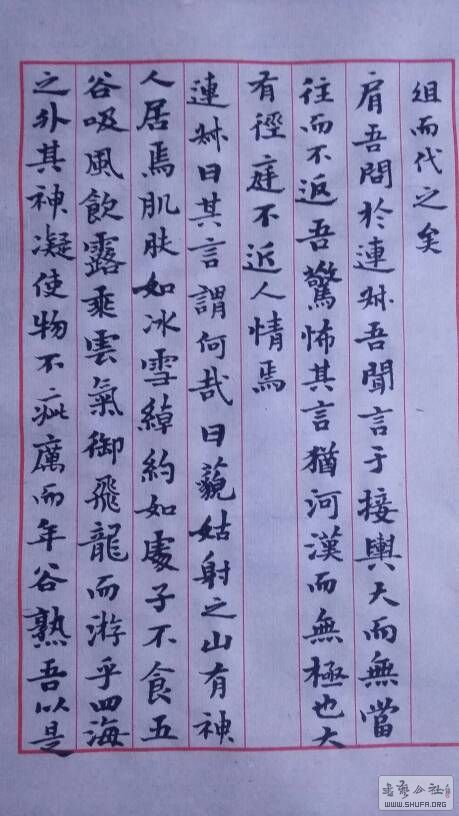 俎而代之矣
肩吾問於連叔吾聞言于接輿大而無當
往而不返吾驚怖其言猶河漢而無極也大
有徑庭不近人情焉
連叔曰其言謂何哉曰藐姑射之山有神
人居焉肌肤如冰雪綽約如處子不食五
谷吸風飲露乘雲氣御飛龍而游乎四海
之外其神凝使物不疵癘而年谷熟吾以是
WWW.SHUFA.ORG